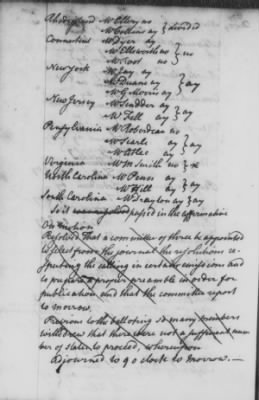 Rhode Island Mr Ellery no
Mr Collins ay } divided
Connecticut Mr Dyer ay
Mr Ellsworth no } no
Mr Root no
New York Mr Jay ay
Mr Duane ay } ay
Mr G Morris ay
New Jersey Mr Scudder ay
Mr Fell ay } ay
Pensylvania Mr Roberdeau no
Mr Searle ay } ay
Mr Atlee ay
Virginia Mr M Smith no } x
North Carolina Mr Penn ay
Mr Hill ay } ay
South Carolina Mr Drayton ay } ay
So it passed in the affirmative
On motion
Resolved That a committee of three be appointed
to select from the journal the resolutions re-
specting the calling in certain emissions and
to prepare a proper preamble in order for
publication and that the committee report
to morrow.
Previous to the balloting so many members
withdrew that there were not a sufficient num
ber of states to proceed, whereupon
Adjourned to 9 o clock to Morrow.—